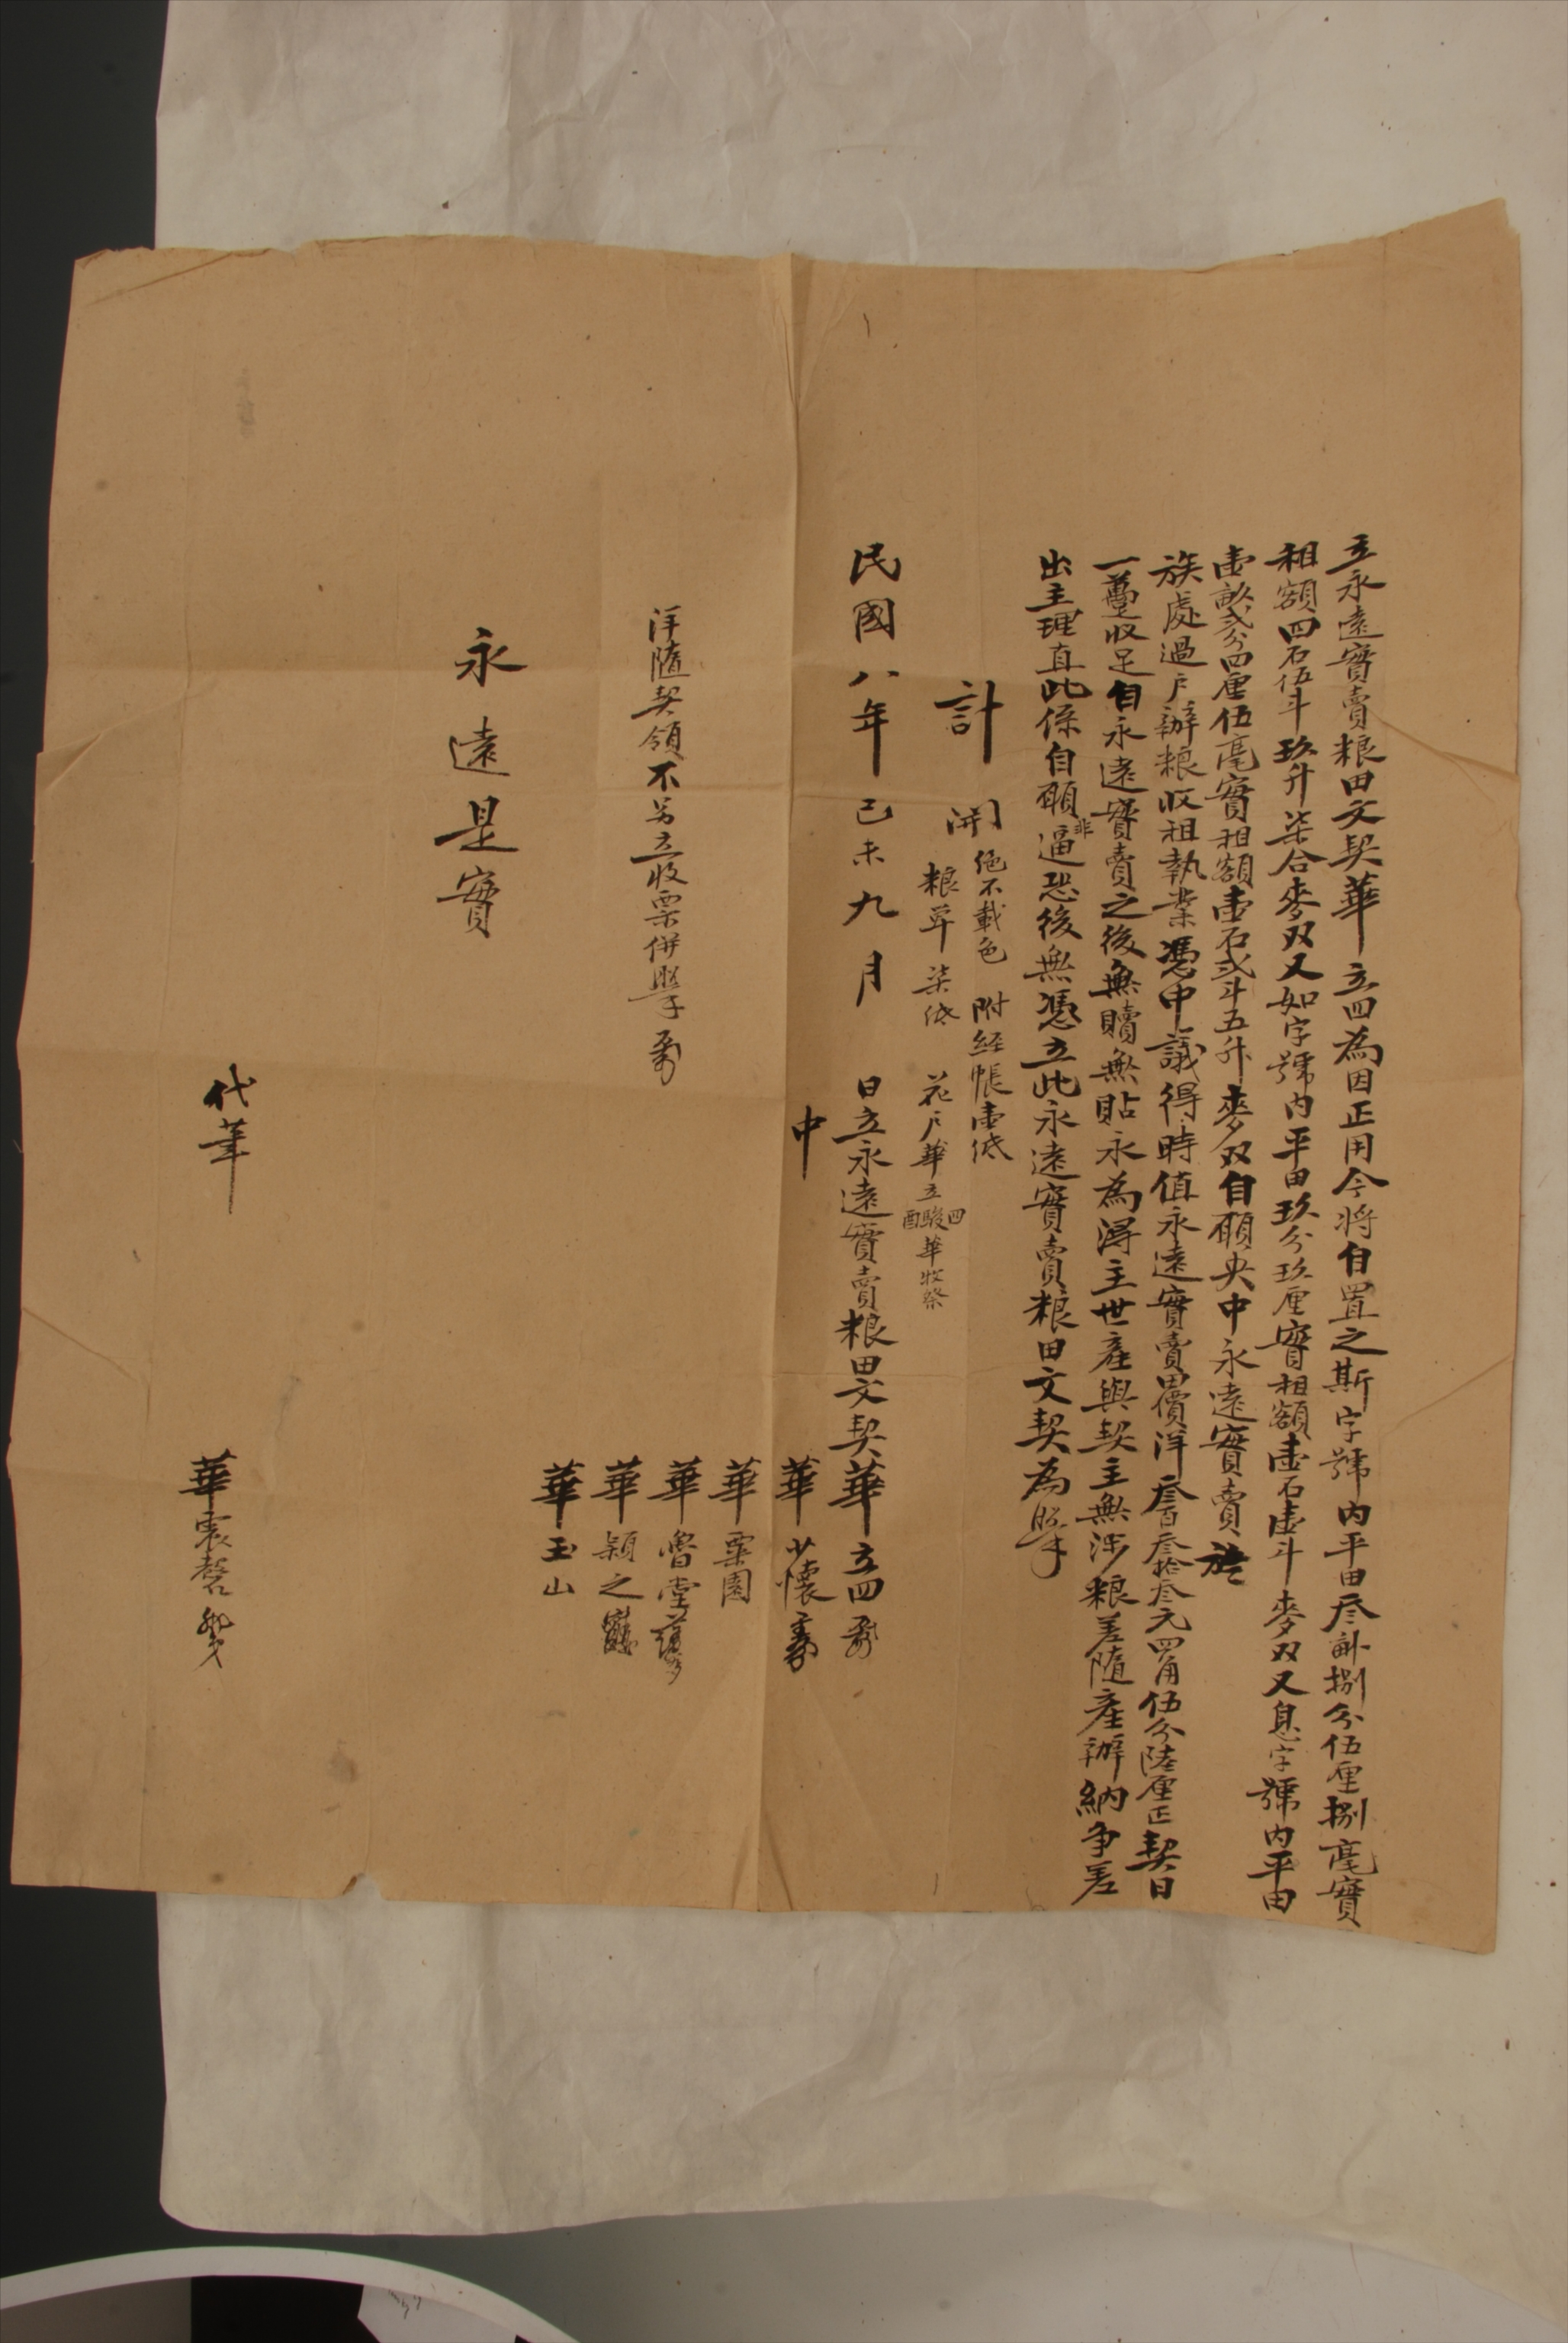 立永遠實賣粮田文契華立四為因正用今將自置之斯字號内平田叁畝捌分伍厘捌毫實
租額四石伍斗玖升柒合麥双又如字號内平田玖分玖厘實租額壹石壹斗麥双又息字號内平田
壹畝弍分四厘伍毫實租額壹石弍斗五升麥双自願央中永遠實賣於
族處過户辦粮收租執業憑中議得時值永遠實賣田價洋叁百叁拾叁元四角伍分陸厘正契日
一躉收足自永遠實賣之後無贖無貼永為得主世産與契主無涉粮差隨産辦納争差
出主理直此係自願非逼恐後無憑立此永遠實賣粮田文契為照
計開 絶不載色 附経帳壹紙
粮单柒紙 花户華立四駿酉華收祭
民國八年己未九月 日立永遠實賣粮田文契華立四
中 華少懷
華粟園
洋隨契領不另立收票併照
華魯堂
華穎之
華玉山
永遠是實
代筆 華震聲